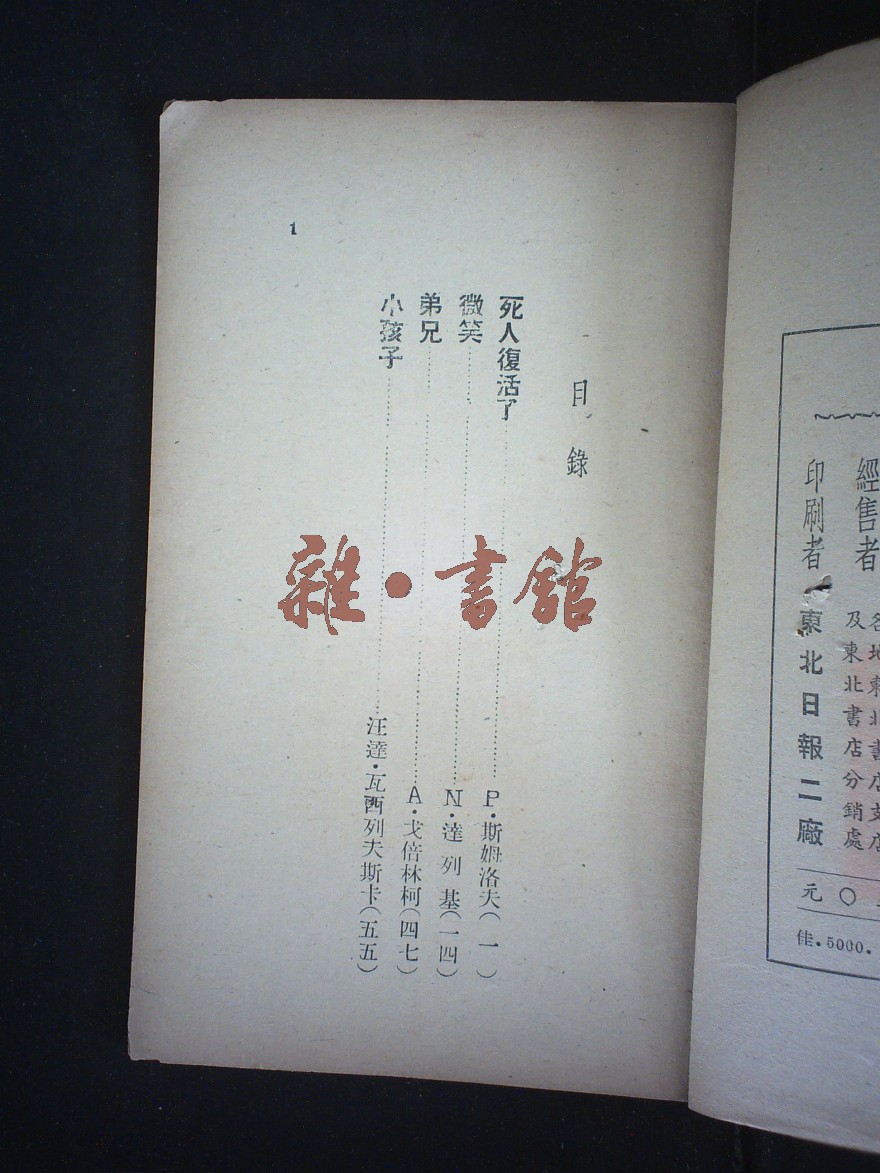 目錄
死人復活了 P・斯姆洛夫(一)
微笑 N・達列基(一四)
弟兄 A・戈倍林柯(四七)
小孩子 汪達・瓦西列夫斯卡(五五)
1
雜・書館
經售者
各地東北書店支店
及東北書店分銷處
印刷者 東北日報二廠
〇元
佳.5000.